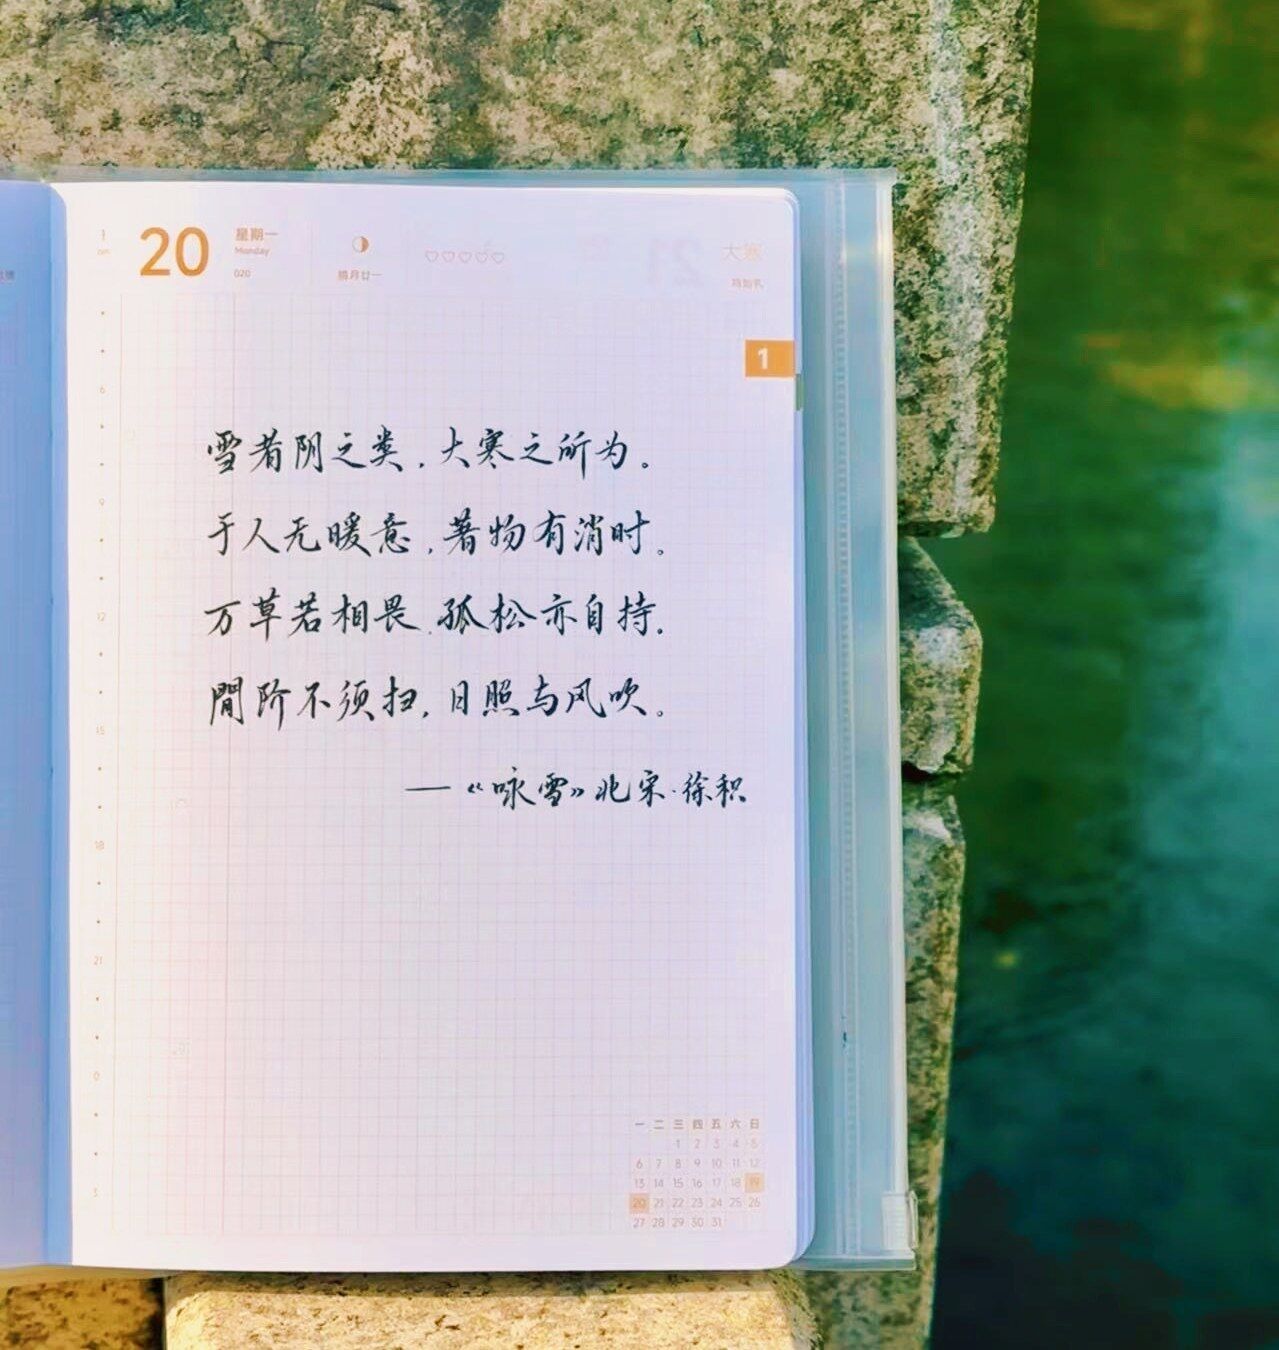 1
20
星期一
Monday
020
腊月廿一
大寒
鸡始乳
1
雪者阴之类，大寒之所为。
于人无暖意，著物有消时。
万草若相畏，孤松亦自持。
閒阶不须扫，日照与风吹。
—《咏雪》北宋·徐积
6
9
12
15
18
21
0
3
一 二 三 四 五 六 日
1 2 3 4 5
6 7 8 9 10 11 12
13 14 15 16 17 18 19
20 21 22 23 24 25 26
27 28 29 30 31